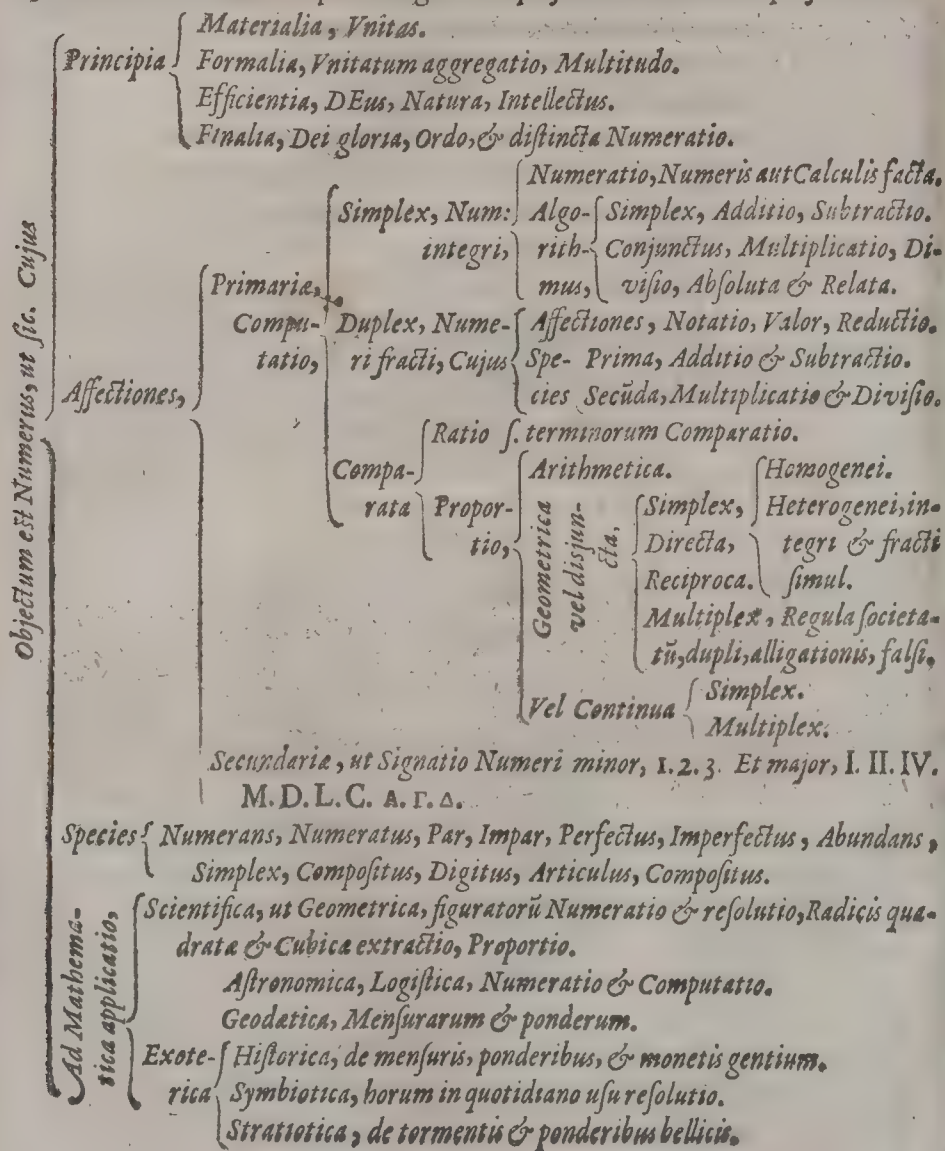 Objectum est Numerus, ut ſic. Cujus
Principia
Materialia, Vnitas.
Formalia, Vnitatum aggregatio, Multitudo.
Efficientia, DEus, Natura, Intellectus.
Finalia, Dei gloria, Ordo, & diſtincta Numeratio.
Affectiones,
Primariæ,
Compu-
tatio,
Simplex, Num:
integri,
Numeratio, Numeris aut Calculis facta.
Algo-
rith-
mus,
Simplex, Additio, Subtractio.
Conjunctus, Multiplicatio, Di-
viſio, Abſoluta & Relata.
Duplex, Nume-
ri fracti, Cujus
Affectiones, Notatio, Valor, Reductio.
Spe-
cies
Prima, Additio & Subtractio.
Secūda, Multiplicatio & Diviſio.
Compa-
rata
Ratio ſ. terminorum Comparatio.
Propor-
tio,
Arithmetica.
Geometrica
vel disjun-
cta,
Simplex,
Directa,
Homogenei.
Heterogenei, in-
tegri & fracti
ſimul.
Reciproca.
Multiplex, Regula ſocieta-
tū, dupli, alligationis, falſi,
Vel Continua
Simplex.
Multiplex.
Secundariæ, ut Signatio Numeri minor, 1. 2. 3. Et major, I. II. IV.
M. D. L. C. Α. Γ. Δ.
Species
Numerans, Numeratus, Par, Impar, Perfectus, Imperfectus, Abundans,
Simplex, Compoſitus, Digitus, Articulus, Compoſitus.
Ad Mathema-
tica applicatio,
Scientifica, ut Geometrica, figuratorū Numeratio & reſolutio, Radicis qua-
dratæ & Cubicæ extractio, Proportio.
Aſtronomica, Logiſtica, Numeratio & Computatio.
Geodætica, Menſurarum & ponderum.
Exote-
rica
Hiſtorica, de menſuris, ponderibus, & monetis gentium.
Symbiotica, horum in quotidiano uſu reſolutio.
Stratiotica, de tormentis & ponderibus bellicis.